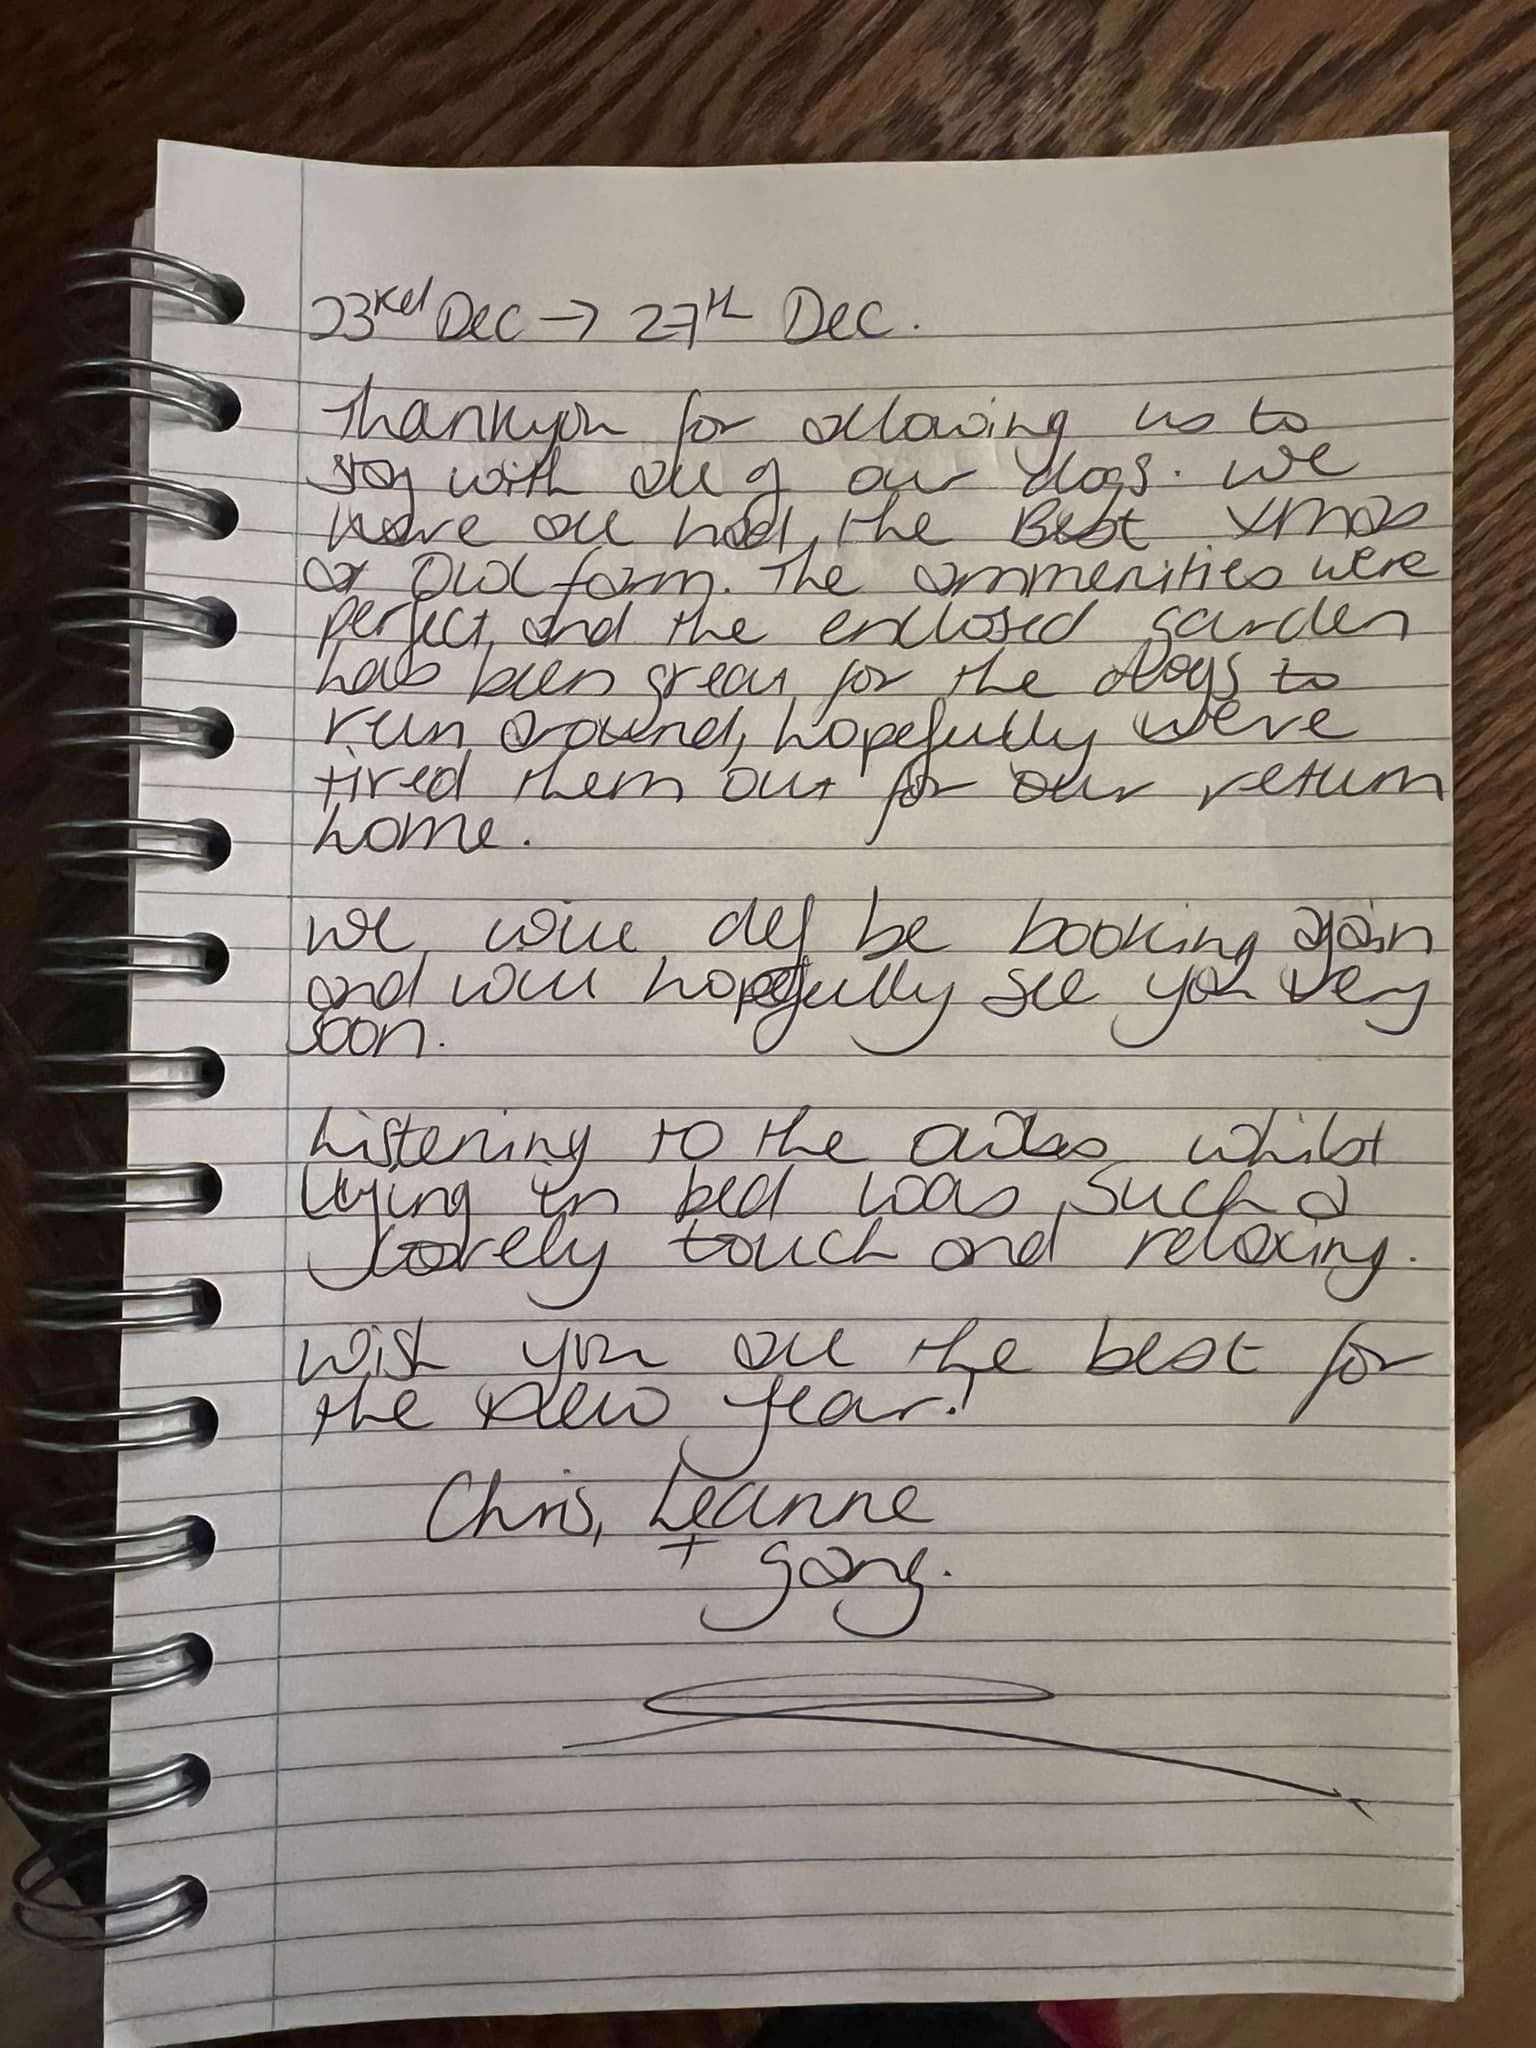 23rd Dec → 27th Dec.
Thankyou for allowing us to
stay with all of our dogs. We
have all had the Best xmas
at Owl farm. The ammenities were
perfect, and the enclosed garden
has been great for the dogs to
run around, hopefully weve
tired them out for our return
home.
We will def be booking again
and will hopefully see you very
soon.
Listening to the owls whilst
lying in bed was such a
lovely touch and relaxing.
Wish you all the best for
the New Year!
Chris, Leanne
+ gang.